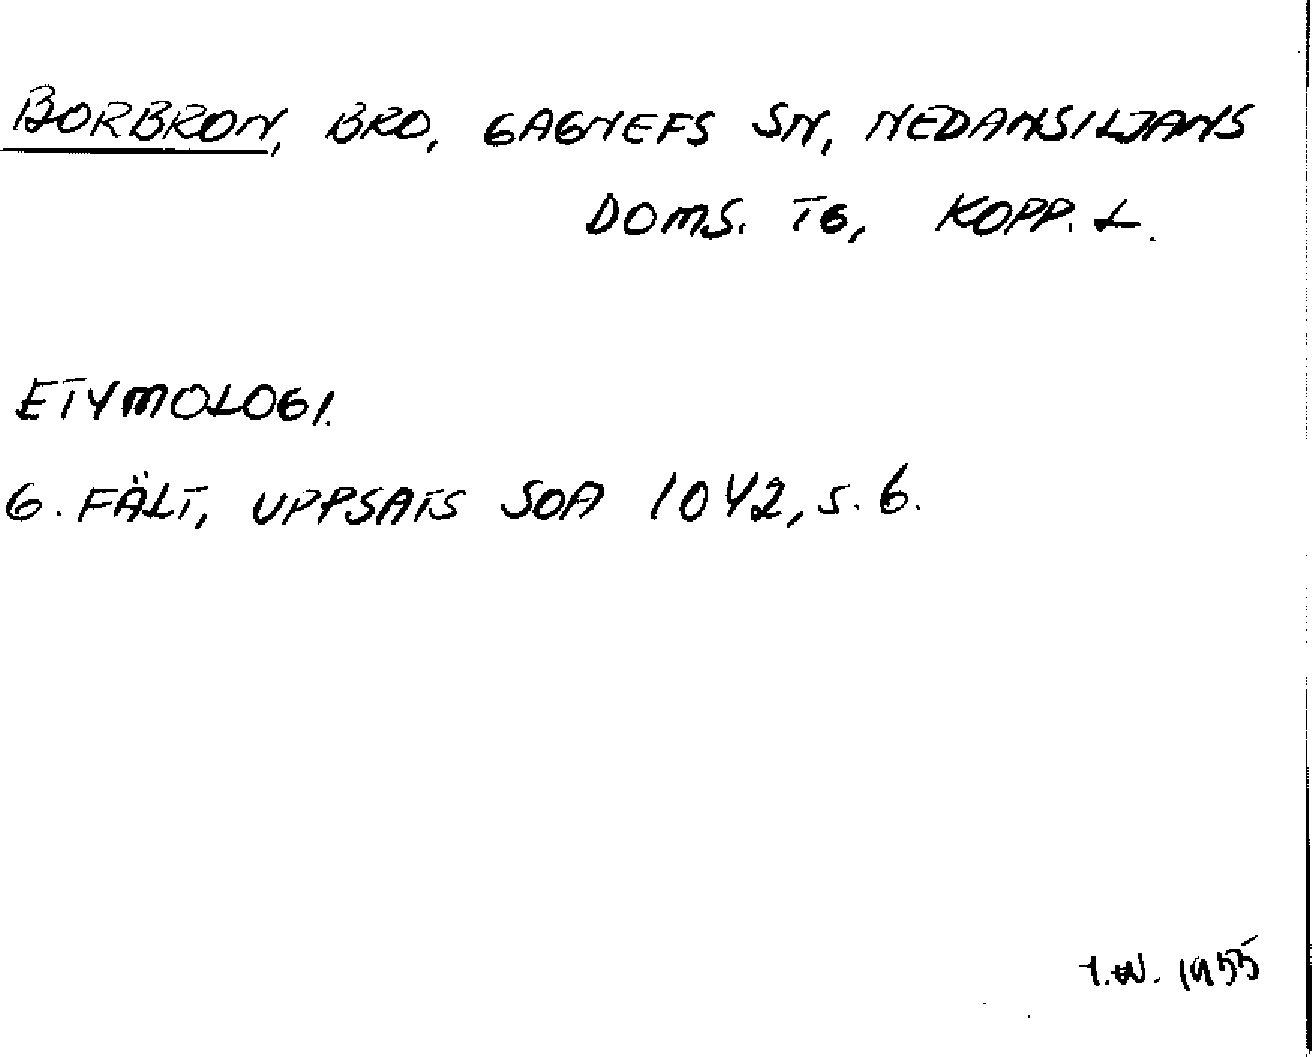 BORBRON, BRO, GAGNEFS SN, NEDANSILJANS
DOMS. TG, KOPP. L.
ETYMOLOGI.
G. FÄLT, UPPSATS SOA 1042, S. 6.
1955